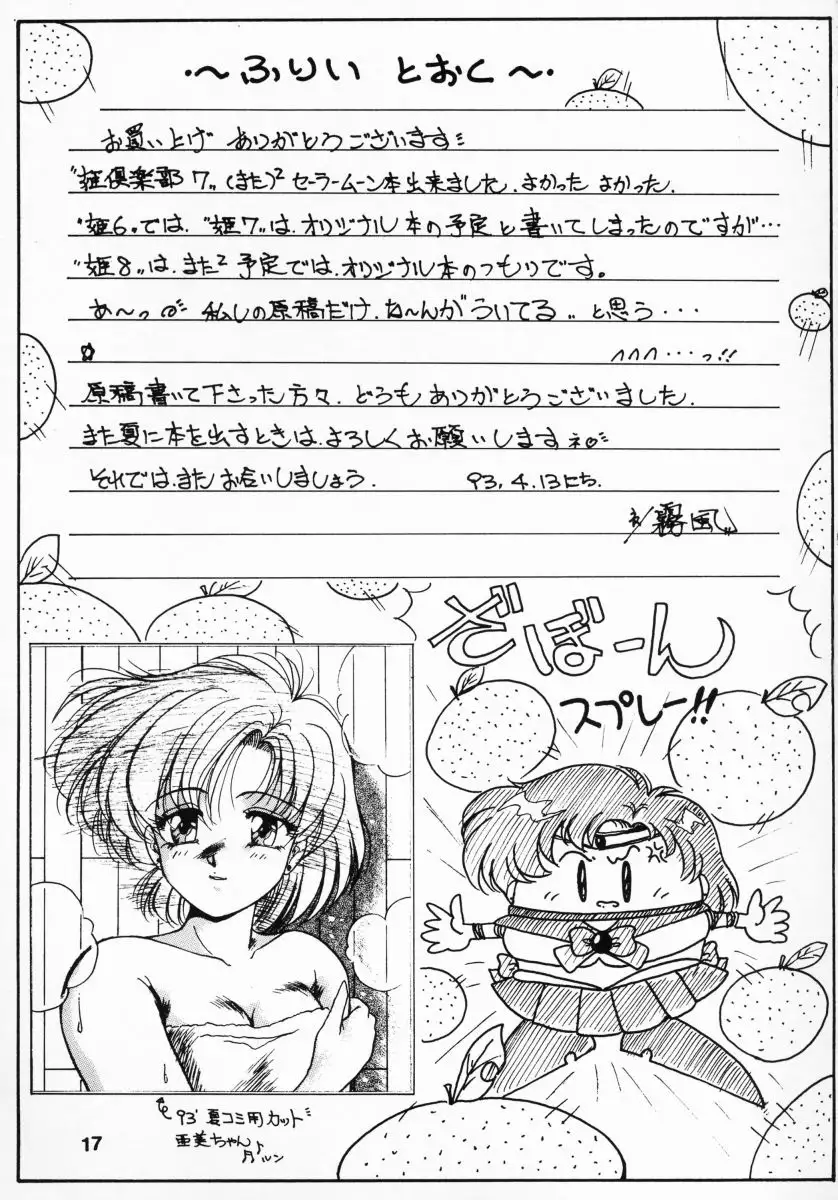 ・～ふりい とおく～・
お買い上げ ありがとうございます
"姫倶楽部7"(また)² セーラームーン本出来ました．よかった よかった．
"姫6"では、"姫7"は、オリジナル本の予定と書いてしまったのですが…
"姫8"は、また² 予定では、オリジナル本のつもりです。
あ～っ 私しの原稿だけ、ね～んがういてる" と思う・・・
へへへ・・・っ!!
原稿書いて下さった方々、どうもありがとうございました．
また夏に本を出すときは、よろしくお願いしますネ
それでは、また お会いしましょう． 93, 4, 13にち．
霧風
ざぼーん
スプレー!!
93' 夏コミ用カット
亜美ちゃん♪
ルン
17